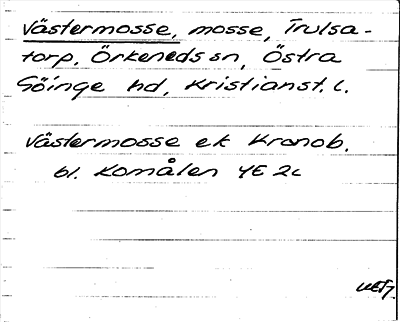 Västermosse, mosse, Trulsa-
torp, Örkeneds sn, Östra
Göinge hd, Kristianst. l.
Västermosse ek Kronob.
bl. Komålen 4E 2c